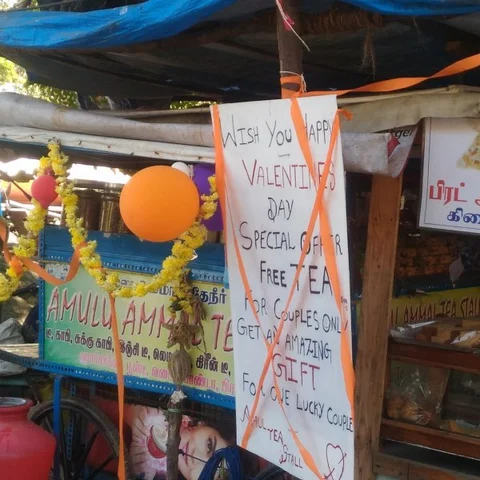 WISH YOU HAPPY
VALENTINE'S
DAY
SPECIAL OFFER
FREE TEA
FOR COUPLES ONLY
GET AN AMAZING
GIFT
FOR ONE LUCKY COUPLE
AMULU TEA
STALL
தேநீர்
AMULU AMMAL TE
டீ, காபி, சுக்கு காபி, இஞ்சி டீ, லெமன் டீ, கிரீன் டீ,
பிரட்
கிடை
AMMAL TEA STALL